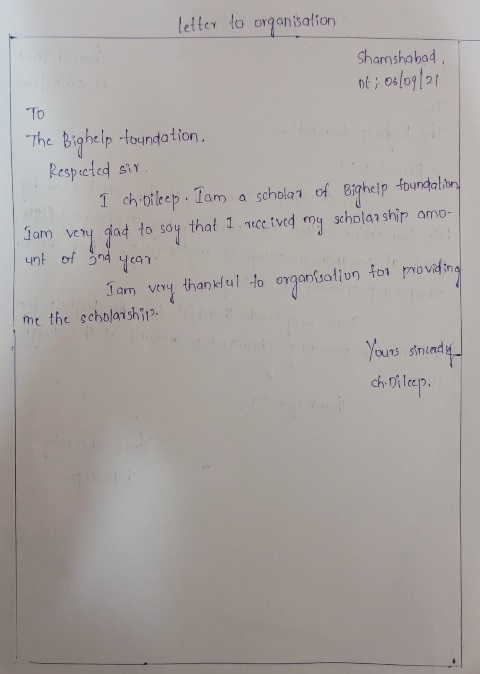 letter to organisation
Shamshabad.
Dt; 06/09/21
To
The Bighelp foundation.
Respected sir.
I ch.Dileep. Iam a scholar of Bighelp foundation
Iam very glad to say that I received my scholarship amo-
unt of 2nd year.
Iam very thankful to organisation for providing
me the scholarship.
Yours sincerely
ch.Dileep.